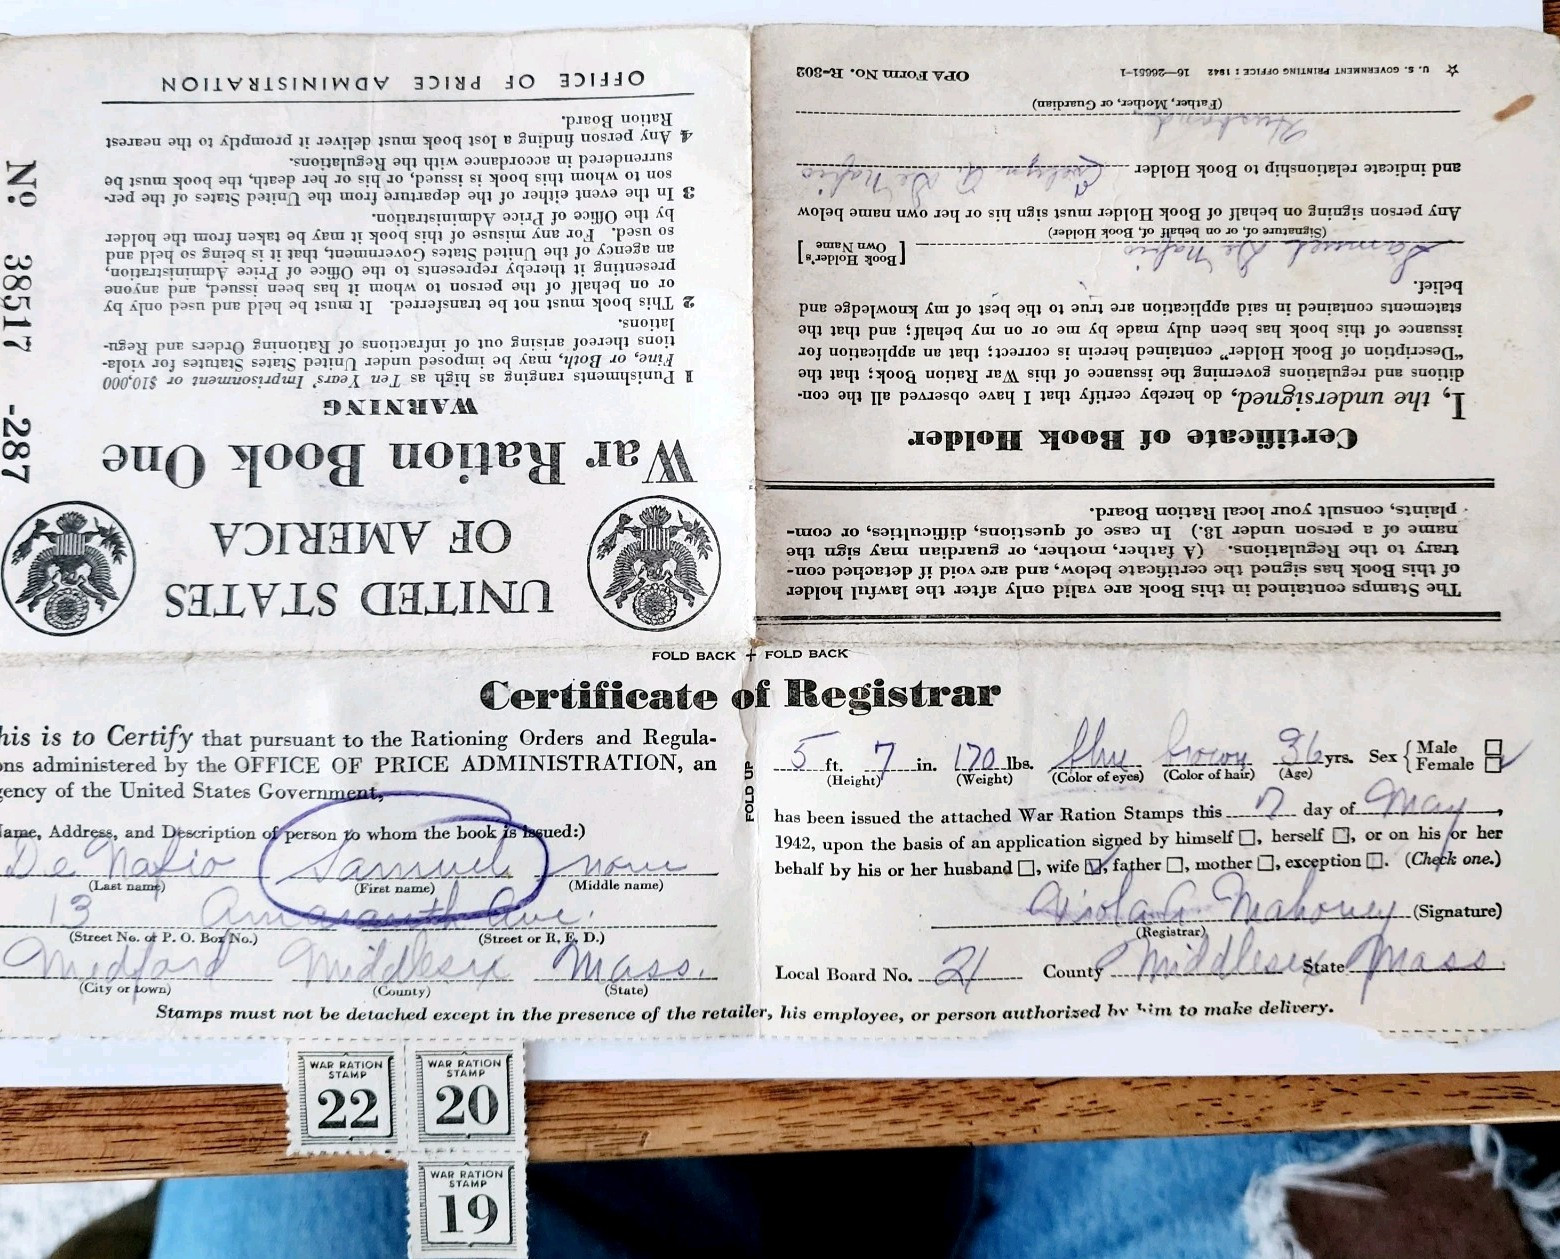 Nº 38517 -287
UNITED STATES
OF AMERICA
War Ration Book One
WARNING
1 Punishments ranging as high as Ten Years' Imprisonment or $10,000
Fine, or Both, may be imposed under United States Statutes for viola-
tions thereof arising out of infractions of Rationing Orders and Regu-
lations.
2 This book must not be transferred. It must be held and used only by
or on behalf of the person to whom it has been issued, and anyone
presenting it thereby represents to the Office of Price Administration,
an agency of the United States Government, that it is being so held and
so used. For any misuse of this book it may be taken from the holder
by the Office of Price Administration.
3 In the event either of the departure from the United States of the per-
son to whom this book is issued, or his or her death, the book must be
surrendered in accordance with the Regulations.
4 Any person finding a lost book must deliver it promptly to the nearest
Ration Board.
OFFICE OF PRICE ADMINISTRATION
The Stamps contained in this Book are valid only after the lawful holder
of this Book has signed the certificate below, and are void if detached con-
trary to the Regulations. (A father, mother, or guardian may sign the
name of a person under 18.) In case of questions, difficulties, or com-
plaints, consult your local Ration Board.
Certificate of Book Holder
I, the undersigned, do hereby certify that I have observed all the con-
ditions and regulations governing the issuance of this War Ration Book; that the
"Description of Book Holder" contained herein is correct; that an application for
issuance of this book has been duly made by me or on my behalf; and that the
statements contained in said application are true to the best of my knowledge and
belief.
Samuel De Nafio [Book Holder's Own Name]
(Signature of, or on behalf of, Book Holder)
Any person signing on behalf of Book Holder must sign his or her own name below
and indicate relationship to Book Holder Evelyn A. De Nafio
Husband
(Father, Mother, or Guardian)
☆ U. S. GOVERNMENT PRINTING OFFICE : 1942 16—26651-1 OPA Form No. R-302
FOLD BACK + FOLD BACK
Certificate of Registrar
his is to Certify that pursuant to the Rationing Orders and Regula-
ons administered by the OFFICE OF PRICE ADMINISTRATION, an
gency of the United States Government,
ame, Address, and Description of person to whom the book is issued:)
De Nafio Samuel none
(Last name) (First name) (Middle name)
13 Amaranth Ave.
(Street No. or P. O. Box No.) (Street or R. F. D.)
Medford Middlesex Mass.
(City or town) (County) (State)
FOLD UP
5 ft. 7 in. 170 lbs. blue brown 36 yrs. Sex { Male
Female
(Height) (Weight) (Color of eyes) (Color of hair) (Age)
has been issued the attached War Ration Stamps this 7 day of May,
1942, upon the basis of an application signed by himself ☐, herself ☐, or on his or her
behalf by his or her husband ☐, wife ☑, father ☐, mother ☐, exception ☐. (Check one.)
Mahoney (Signature)
(Registrar)
Local Board No. 21 County Middlesex State Mass.
Stamps must not be detached except in the presence of the retailer, his employee, or person authorized by him to make delivery.
WAR RATION
STAMP
22
WAR RATION
STAMP
20
WAR RATION
STAMP
19